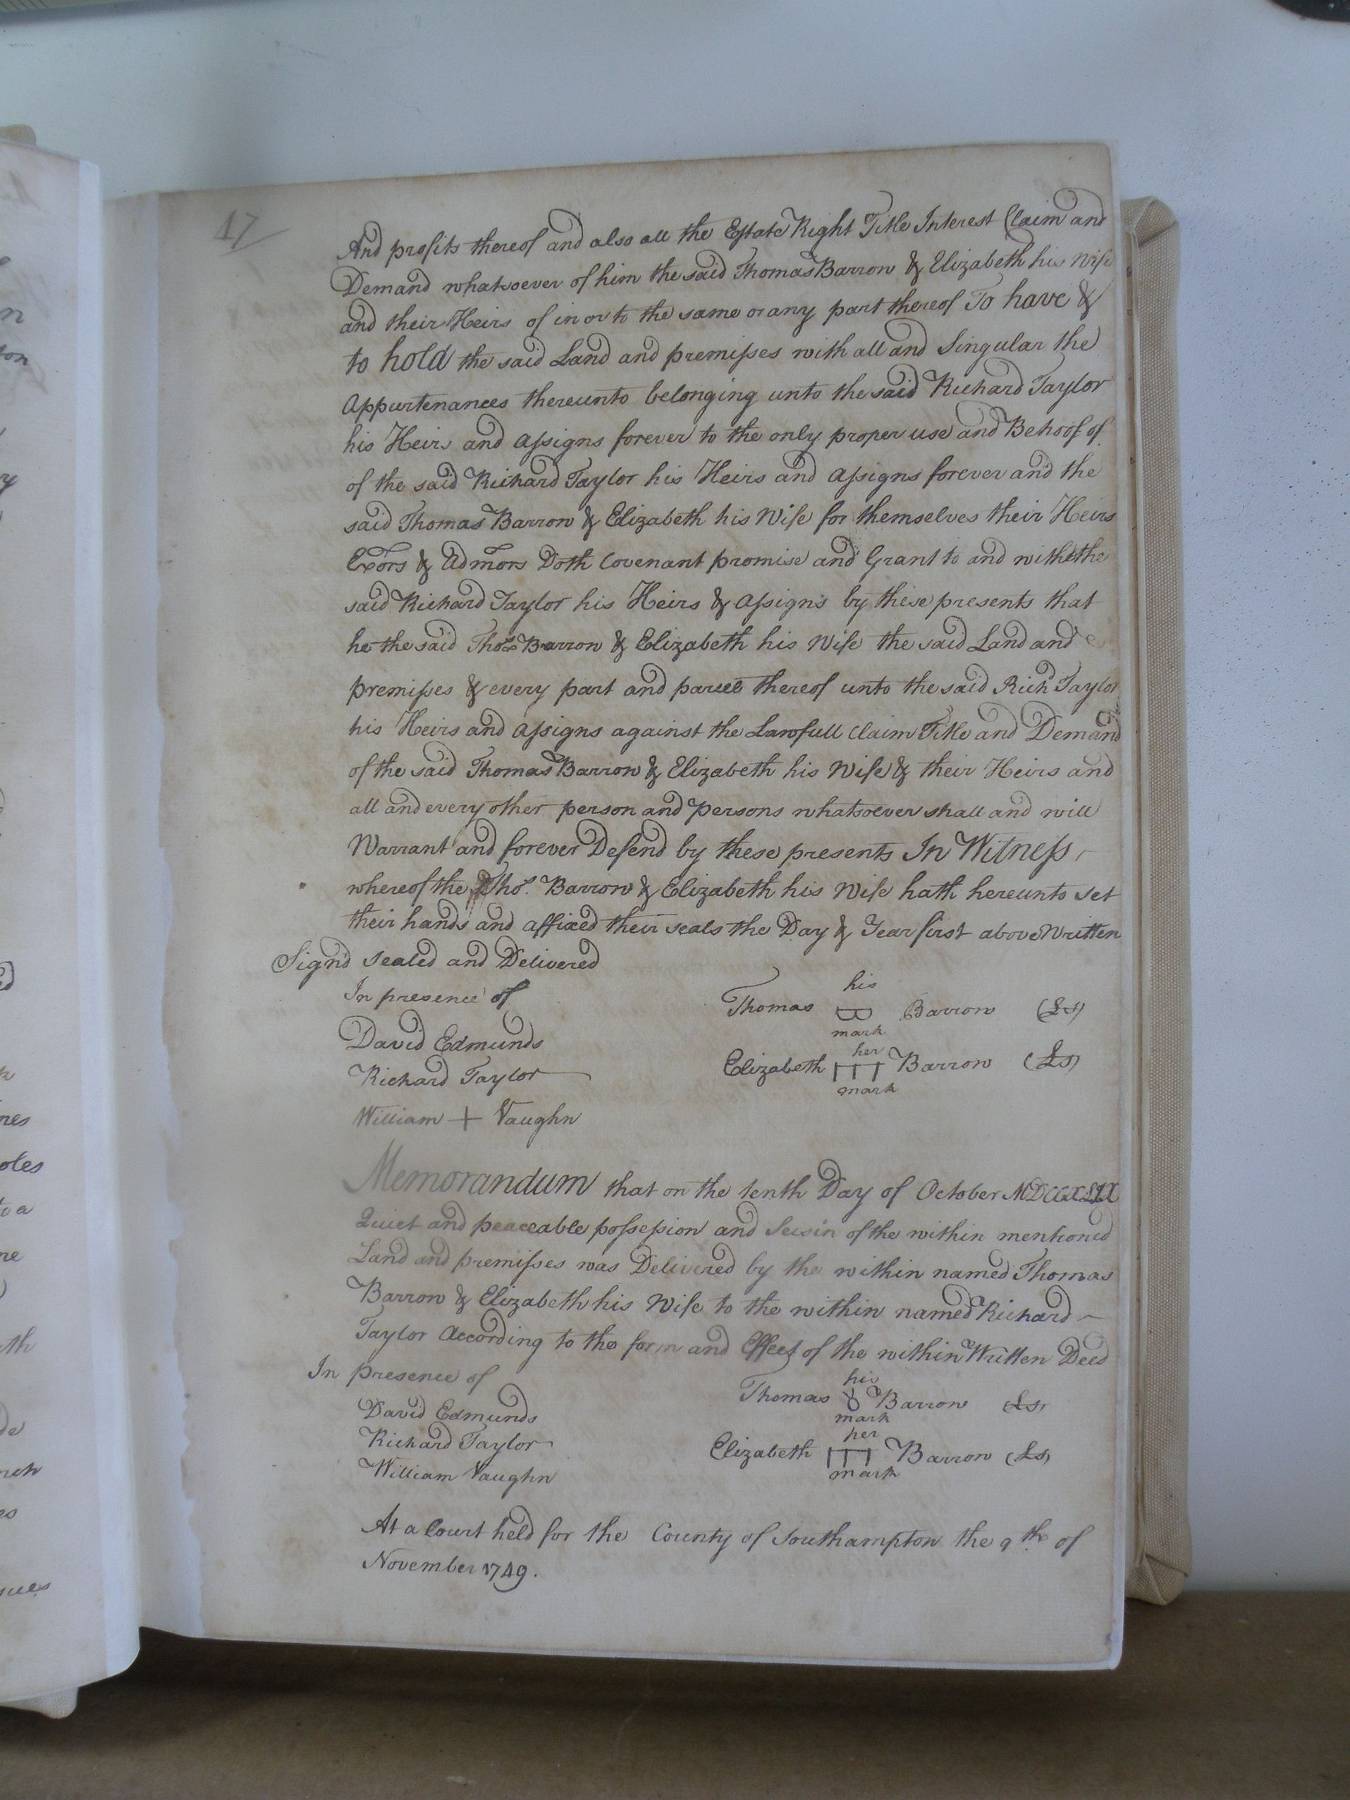 17
And profits thereof and also all the Estate Right Title Interest Claim and
Demand whatsoever of him the said Thomas Barron & Elizabeth his Wife
and their Heirs of in or to the same or any part thereof To have &
to hold the said Land and premisses with all and Singular the
Appurtenances thereunto belonging unto the said Richard Taylor
his Heirs and Assigns forever to the only proper use and Behoof of
of the said Richard Taylor his Heirs and Assigns forever and the
said Thomas Barron & Elizabeth his Wife for themselves their Heirs
Exors & Admors Doth Covenant promise and Grant to and with the
said Richard Taylor his Heirs & Assigns by these presents that
he the said Thos Barron & Elizabeth his Wife the said Land and
premisses & every part and parcel thereof unto the said Richd Taylor
his Heirs and Assigns against the Lawfull Claim Title and Demand
of the said Thomas Barron & Elizabeth his Wife & their Heirs and
all and every other person and Persons whatsoever shall and will
Warrant and forever Defend by these presents In Witness
whereof the Thos. Barron & Elizabeth his Wife hath hereunto set
their hands and affixed their seals the Day & Year first above Written
Sign'd Sealed and Delivered
In presence of
David Edmunds
Richard Taylor
William + Vaughn
his
Thomas B Barron (Ls)
mark
her
Elizabeth Barron (Ls)
mark
Memorandum that on the tenth Day of October MDCCXLIX
Quiet and peaceable possession and Seisin of the within mentioned
Land and premisses was Delivered by the within named Thomas
Barron & Elizabeth his Wife to the within named Richard
Taylor According to the form and Effect of the within Written Deed
In presence of
David Edmunds
Richard Taylor
William Vaughn
his
Thomas Barron (Ls)
mark
her
Elizabeth Barron (Ls)
mark
At a Court held for the County of Southampton the 9th of
November 1749.